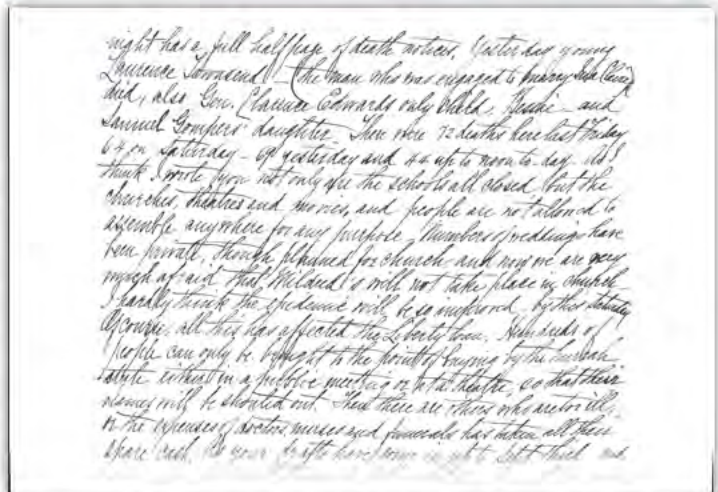 night has a full half page of death notices. Yesterday young
Laurence Townsend - (the man who was engaged to marry Ina Claire)
died, also Gen. Clarence Edwards only child, Bessie - and
Samuel Gompers' daughter. There were 72 deaths here last Friday
64 on Saturday - 69 yesterday and 44 up to noon to-day. As I
think I wrote you not only are the schools all closed but the
churches, theatres and movies, and people are not allowed to
assemble anywhere for any purpose. Numbers of weddings have
been private, though planned for church, and now we are very
much afraid that will not take place in church
I hardly think the epidemic will be so improved by this Saturday
Of course, all this has affected the Liberty loan. Hundreds of
people can only be brought to the point of buying by the hurrah
style either in a public meeting or at a theatre, so that their
names will be shouted out. Then there are others who are too ill,
or the expenses of doctors, nurses and funerals has taken all their
spare cash. your drafts have